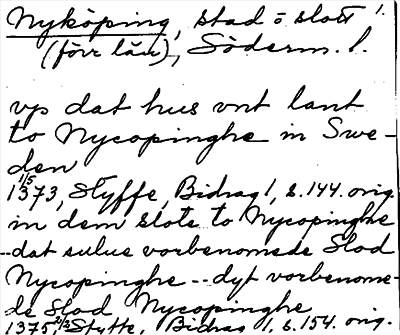 Nyköping, stad o slott 1.
(förr län), Söderm. l.
vp dat hus vnt lant
to Nycopinghe in Swe-
den
1/5
1373, Styffe, Bidrag 1, s. 144. orig.
in dem slote to Nycopinghe
--dat sulue vorbenomede Slod
Nycopinghe -- dyt vorbenome-
de Slod Nycopinghe
1375 24/3 Styffe, Bidrag 1, s. 154. orig.